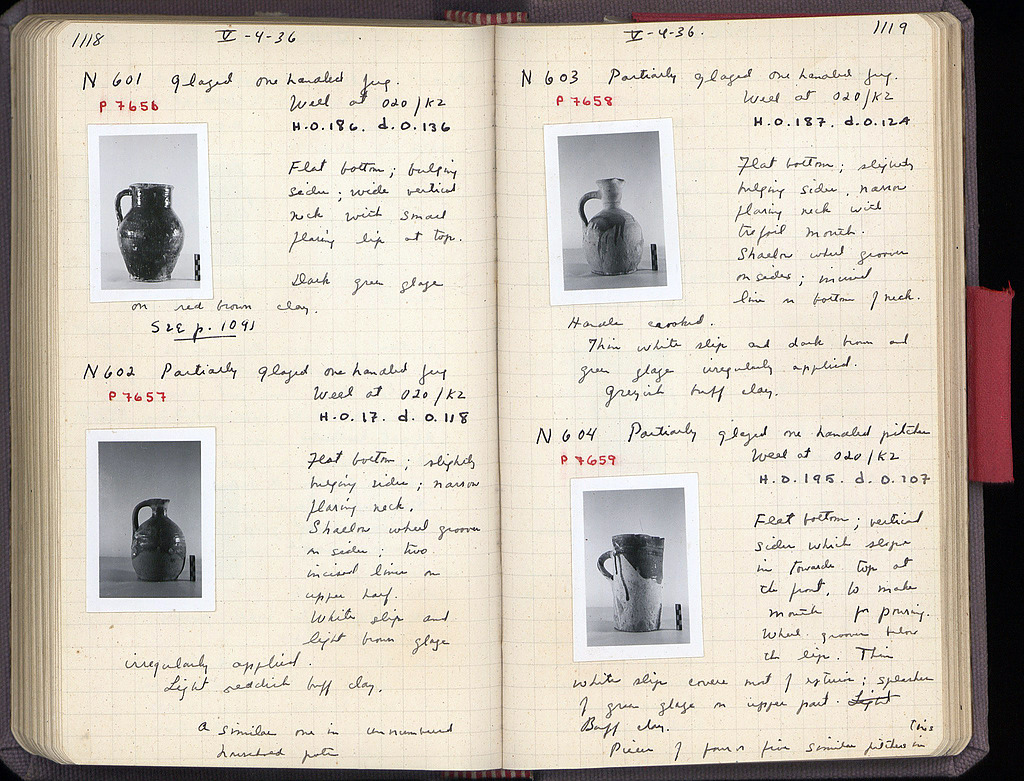 1118
V-4-36
N 601 Glazed one handled jug.
P 7656
Well at O20/K2
H. 0.186. d. 0.136
Flat bottom; bulging
sides; wide vertical
neck with small
flaring lip at top.
Dark green glaze
on red brown clay.
SEE p. 1091
N 602 Partially glazed one handled jug
P 7657
Well at O20/K2
H. 0.17. d. 0.118
Flat bottom; slightly
bulging sides; narrow
flaring neck.
Shallow wheel grooves
on sides; two
incised lines on
upper half.
White slip and
light brown glaze
irregularly applied.
Light reddish buff clay.
A similar one in unnumbered
pots
V-4-36.
1119
N 603 Partially glazed one handled jug.
P 7658
Well at O20/K2
H. 0.187. d. 0.124
Flat bottom; slightly
bulging sides, narrow
flaring neck with
trefoil mouth.
Shallow wheel grooves
on sides; incised
line on bottom of neck.
Handle crooked.
Thin white slip and dark brown and
green glaze irregularly applied.
Greyish buff clay.
N 604 Partially glazed one handled pitcher
P 7659
Well at O20/K2
H. 0.195. d. 0.107
Flat bottom; vertical
sides which slope
in towards top at
the front, to make
mouth for pouring.
Wheel grooves below
the lip. Thin
white slip covers most of exterior; splashes
of green glaze on upper part. Light
Buff clay.
Pieces of four or five similar pitchers in